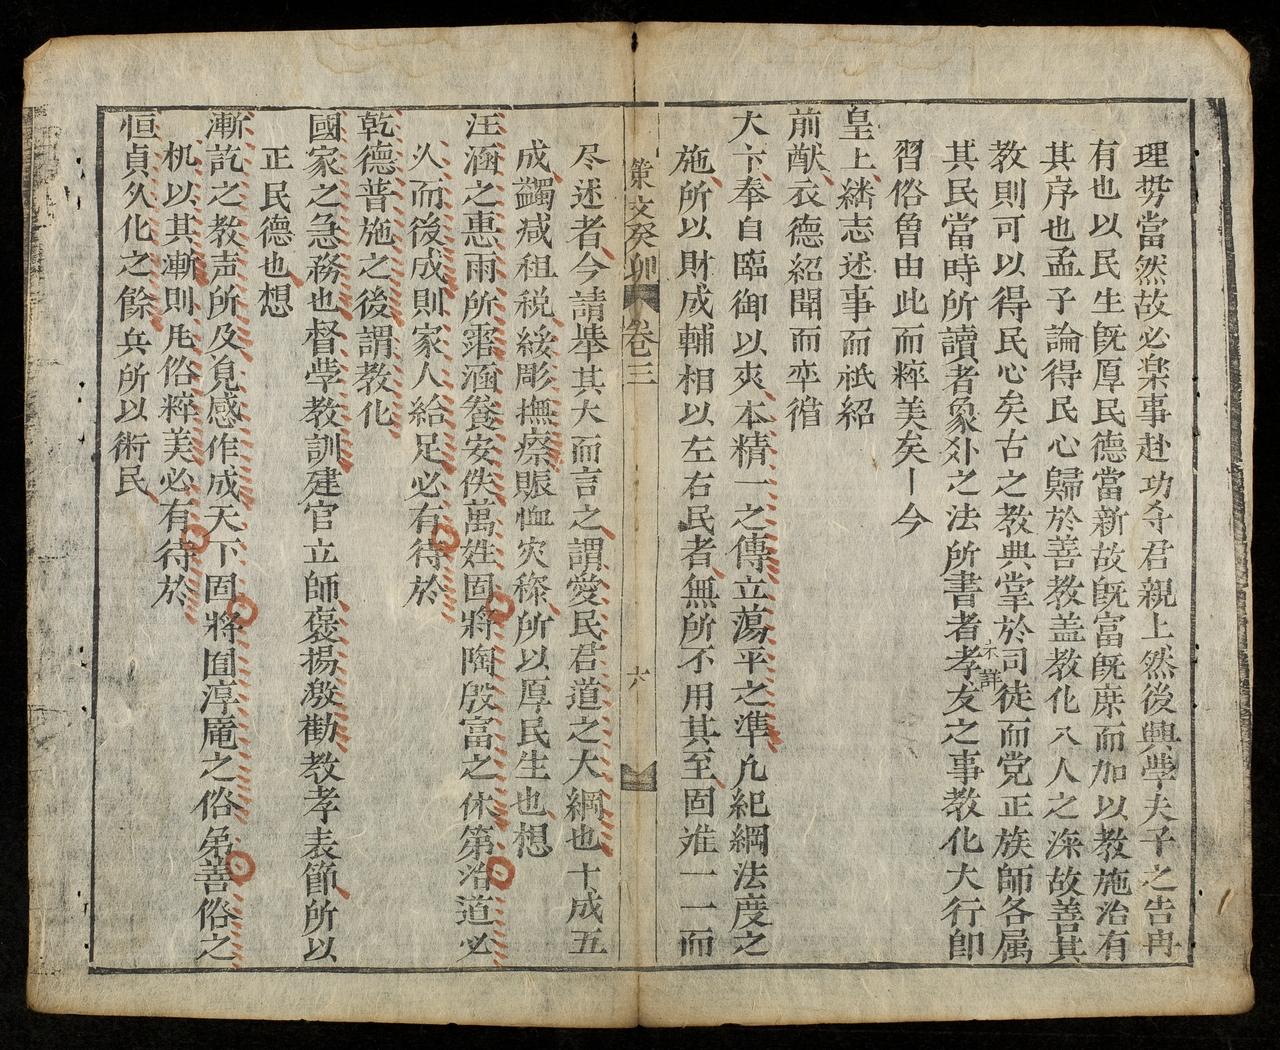 理势當然故必楽事赴功夺君親上然後興學夫子之告冉
有也以民生既厚民德當新故既富既庶而加以教施治有
其序也孟子論得民心歸於善教盖教化入人之深故善其
教則可以得民心矣古之教典掌於司徒而党正族師各属
其民當時所讀者象外之法所書者孝友之事教化大行即
未詳
習俗曾由此而粹美矣丨今
皇上繼志述事而祇紹
前猷衣德紹聞而率循
大卞奉自臨御以來本精一之傳立蕩平之準凡紀綱法度之
施所以財成輔相以左右民者無所不用其至固难一一而
策文癸卯 卷三
六
尽述者今請举其大而言之謂愛民君道之大綱也十成五
成蠲减租税綏彫撫瘵賑恤灾䄜所以厚民生也想
汪涵之惠雨所霑涵養安佚萬姓固將陶殷富之休第治道必
久而後成則家人給足必有待於
乾德普施之後謂教化
國家之急務也督學教訓建官立師褒揚激勸教孝表節所以
正民德也想
漸訖之教声所及覓感作成天下固將囿淳庵之俗弟善俗之
机以其漸則凡俗粹美必有待於
恒貞久化之餘兵所以術民